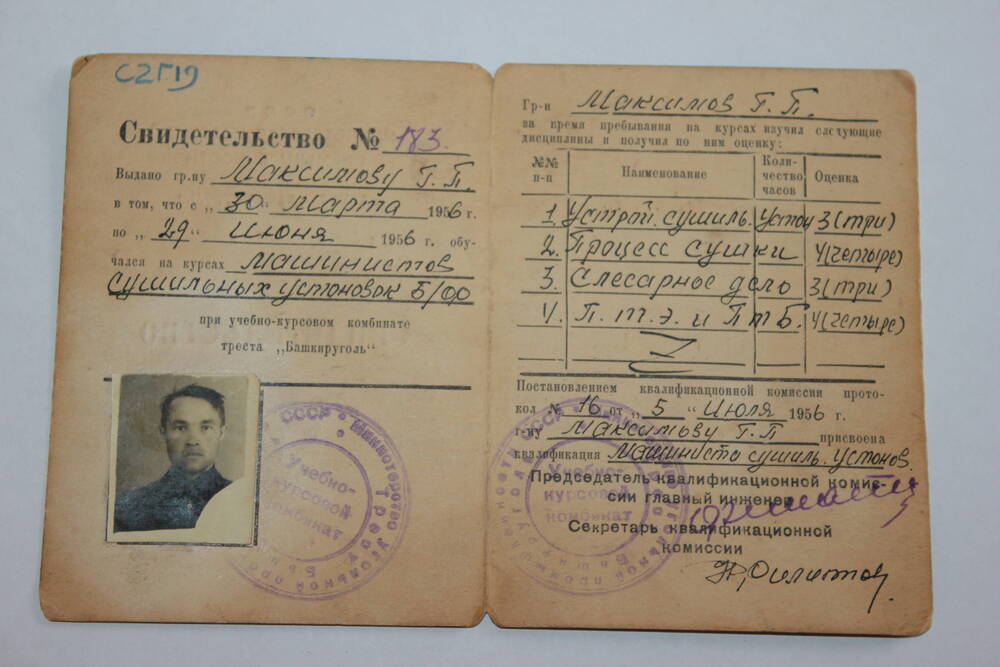 С2Г19
Свидетельство № 183.
Выдано гр.ну Максимову Г. П.
в том, что с „ 30 “ марта 1956 г.
по „ 29 “ июня 1956 г. обу-
чался на курсах машинистов
сушильных установок Б/ф
при учебно-курсовом комбинате
треста „Башкируголь“
СССР • Министерство угольной
Учебно-
курсовой
комбинат
Гр-н Максимов Г. П.
за время пребывания на курсах изучил следующие
дисциплины и получил по ним оценку:
№№ п-п Наименование Коли-чество часов Оценка
1. Устр. сушиль. устан 3 (три)
2. Процесс сушки 4 (четыре)
3. Слесарное дело 3 (три)
4. П. т. э. и П т Б. 4 (четыре)
Постановлением квалификационной комиссии прото-
кол № 16 от „ 5 “ июля 1956 г.
г-ну Максимову Г. П присвоена
квалификация Машиниста сушиль. установ.
Председатель квалификационной комис-
сии главный инженер
Секретарь квалификационной
комиссии
Учебно-
курсовой
комбинат